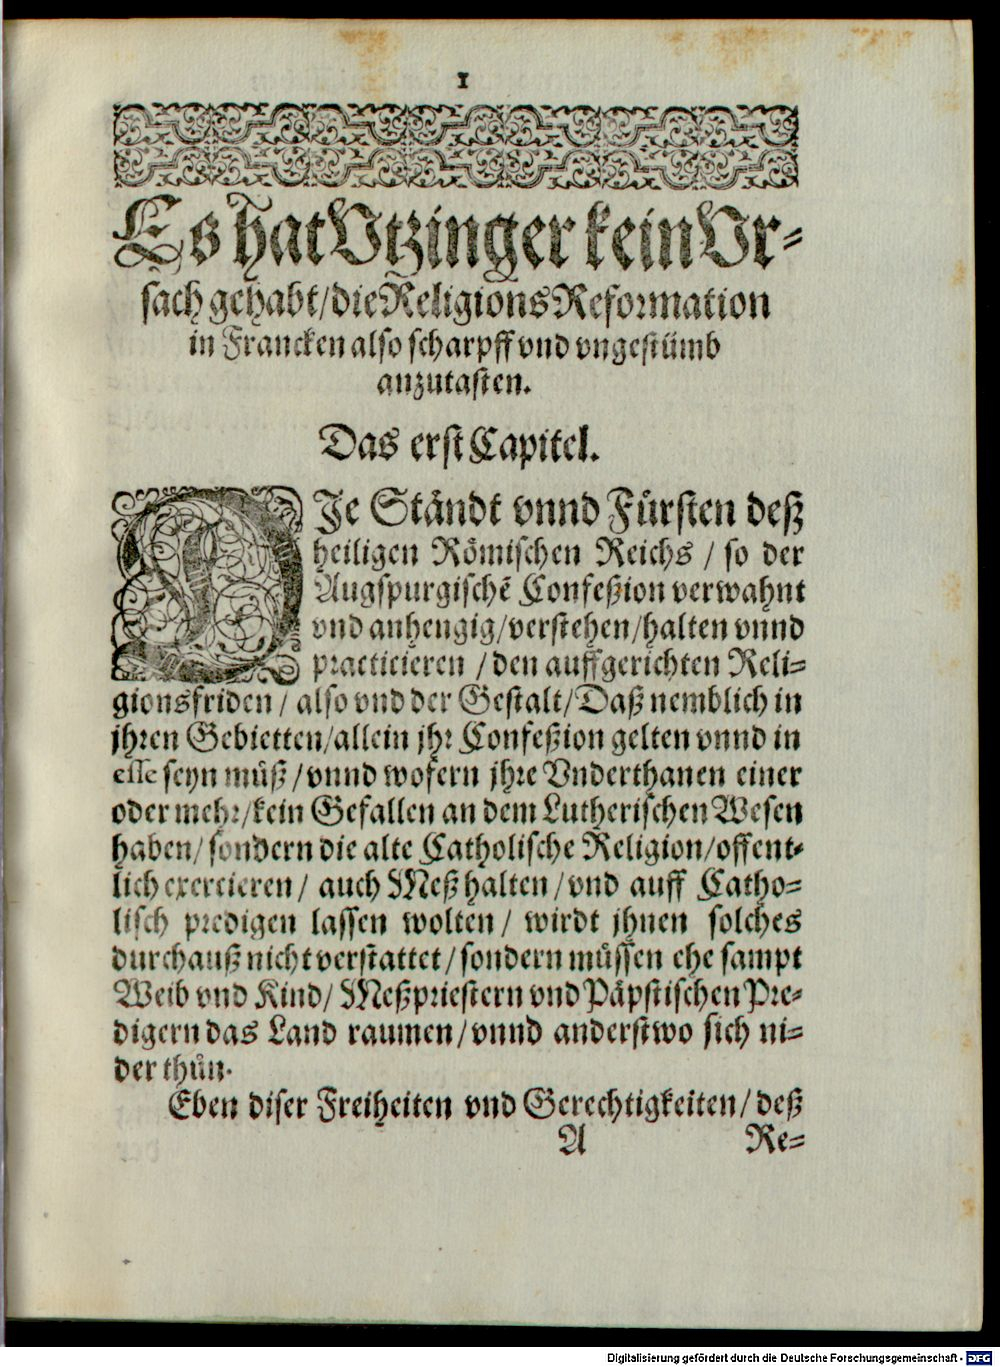 1
Es hat Vtzinger kein Vr-
sach gehabt/ die Religions Reformation
in Francken also scharpff vnd vngestümb
anzutasten.
Das erst Capitel.
DJe Ständt vnnd Fürsten deß
heiligen Römischen Reichs / so der
Augspurgischē Confeßion verwahnt
vnd anhengig/ verstehen/ halten vnnd
practicieren / den auffgerichten Reli-
gionsfriden / also vnd der Gestalt/ Daß nemblich in
jhren Gebietten/ allein jhr Confeßion gelten vnnd in
esse seyn müß / vnnd wofern jhre Vnderthanen einer
oder mehr/ kein Gefallen an dem Lutherischen Wesen
haben/ sondern die alte Catholische Religion/ offent-
lich exercieren / auch Meß halten / vnd auff Catho-
lisch predigen lassen wolten / wirdt jhnen solches
durchauß nicht verstattet / sondern müssen ehe sampt
Weib vnd Kind/ Meßpriestern vnd Päpstischen Pre-
digern das Land raumen/ vnnd anderstwo sich ni-
der thůn.
Eben diser Freiheiten vnd Gerechtigkeiten/ deß
A Re-
Digitalisierung gefördert durch die Deutsche Forschungsgemeinschaft - DFG